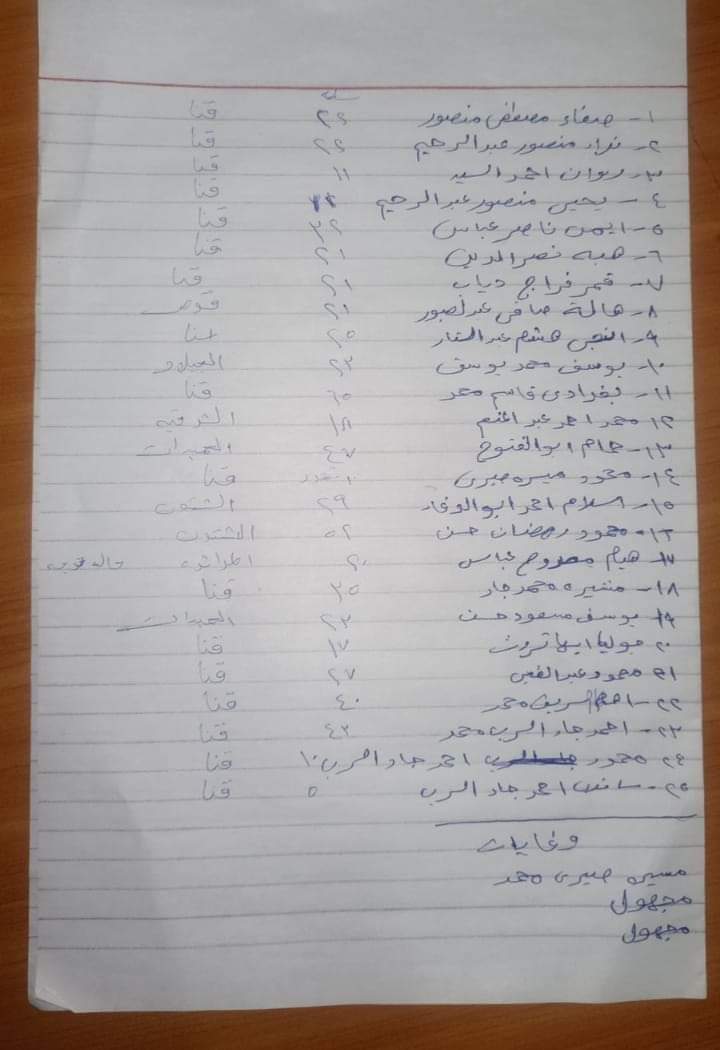 سنه
١- صفاء مصطفى منصور ٢٤ قنا
٢- نزاد منصور عبد الرحيم ٢٤ قنا
٣- روان احمد السيد ١١ قنا
٤- يحيى منصور عبد الرحيم قنا
٥- ايمن ناصر عباس ٣٢ قنا
٦- هبه نصر الدين ٢١ قنا
٧- قمر فراج دياب ٢١ قنا
٨- هالة صافى عبد الصبور ٢١ قوص
٩- هشام عبد الستار ٢٥ قنا
١٠- يوسف محمد يوسف ٢٣
١١- بغدادى قاسم محمد ٦٥ قنا
١٢- محمد احمد عبد المنعم ١٨ الشرقيه
١٣- حمام ابو الفتوح ٤٧ الحميدات
١٤- محمود ميسره صبرى قنا
١٥- اسلام احمد ابو الوفا ٢٩
١٦- محمود رمضان حسن ٥٢
١٧- هيام ممدوح عباس ٢٠
١٨- منيره محمد جاد ٣٥ قنا
١٩- يوسف مسعود حسن ٢٣ الحميدات
٢٠- جوليا ايهاب ثروت ١٧ قنا
٢١- محمود عبد ٢٧ قنا
٢٢- شريف محمد ٤٠ قنا
٢٣- احمد جاد الرب محمد ٤٣ قنا
٢٤- محمود احمد جاد الرب ١٠ قنا
٢٥- احمد جاد الرب ٥ قنا
وفايات
ميسره صبرى محمد
مجهول
مجهول